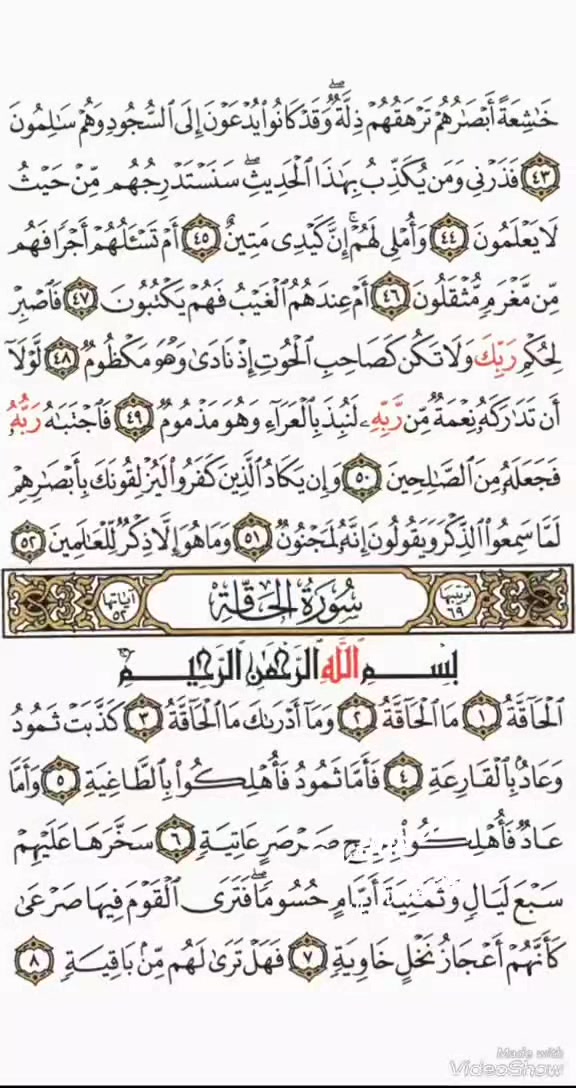 خَٰشِعَةً أَبْصَٰرُهُمْ تَرْهَقُهُمْ ذِلَّةٌ ۖ وَقَدْ كَانُوا۟ يُدْعَوْنَ إِلَى ٱلسُّجُودِ وَهُمْ سَٰلِمُونَ
٤٣ فَذَرْنِى وَمَن يُكَذِّبُ بِهَٰذَا ٱلْحَدِيثِ ۖ سَنَسْتَدْرِجُهُم مِّنْ حَيْثُ
لَا يَعْلَمُونَ ٤٤ وَأُمْلِى لَهُمْ ۚ إِنَّ كَيْدِى مَتِينٌ ٤٥ أَمْ تَسْـَٔلُهُمْ أَجْرًا فَهُم
مِّن مَّغْرَمٍ مُّثْقَلُونَ ٤٦ أَمْ عِندَهُمُ ٱلْغَيْبُ فَهُمْ يَكْتُبُونَ ٤٧ فَٱصْبِرْ
لِحُكْمِ رَبِّكَ وَلَا تَكُن كَصَاحِبِ ٱلْحُوتِ إِذْ نَادَىٰ وَهُوَ مَكْظُومٌ ٤٨ لَّوْلَآ
أَن تَدَٰرَكَهُۥ نِعْمَةٌ مِّن رَّبِّهِۦ لَنُبِذَ بِٱلْعَرَآءِ وَهُوَ مَذْمُومٌ ٤٩ فَٱجْتَبَٰهُ رَبُّهُۥ
فَجَعَلَهُۥ مِنَ ٱلصَّٰلِحِينَ ٥٠ وَإِن يَكَادُ ٱلَّذِينَ كَفَرُوا۟ لَيُزْلِقُونَكَ بِأَبْصَٰرِهِمْ
لَمَّا سَمِعُوا۟ ٱلذِّكْرَ وَيَقُولُونَ إِنَّهُۥ لَمَجْنُونٌ ٥١ وَمَا هُوَ إِلَّا ذِكْرٌ لِّلْعَٰلَمِينَ ٥٢
ترتيبها ٦٩ سُورَةُ الحَاقَّةِ آياتها ٥٢
بِسْمِ ٱللَّهِ ٱلرَّحْمَٰنِ ٱلرَّحِيمِ
ٱلْحَآقَّةُ ١ مَا ٱلْحَآقَّةُ ٢ وَمَآ أَدْرَىٰكَ مَا ٱلْحَآقَّةُ ٣ كَذَّبَتْ ثَمُودُ
وَعَادٌۢ بِٱلْقَارِعَةِ ٤ فَأَمَّا ثَمُودُ فَأُهْلِكُوا۟ بِٱلطَّاغِيَةِ ٥ وَأَمَّا
عَادٌ فَأُهْلِكُوا۟ بِرِيحٍ صَرْصَرٍ عَاتِيَةٍ ٦ سَخَّرَهَا عَلَيْهِمْ
سَبْعَ لَيَالٍ وَثَمَٰنِيَةَ أَيَّامٍ حُسُومًا ۖ فَتَرَى ٱلْقَوْمَ فِيهَا صَرْعَىٰ
كَأَنَّهُمْ أَعْجَازُ نَخْلٍ خَاوِيَةٍ ٧ فَهَلْ تَرَىٰ لَهُم مِّنۢ بَاقِيَةٍ ٨
Made with
VideoShow